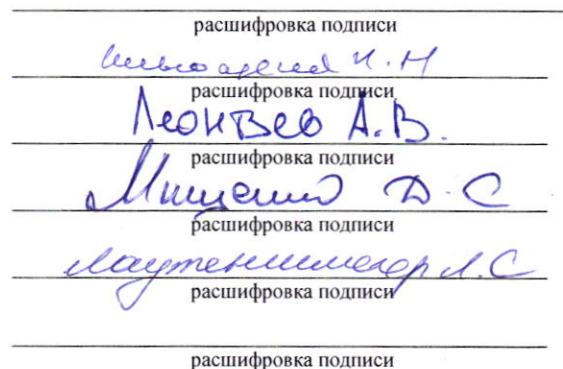 расшифровка подписи
И. Н
расшифровка подписи
Леонтьев А. В.
расшифровка подписи
Мищенко Д. С
расшифровка подписи
Лаутеншлегер Л. С
расшифровка подписи
расшифровка подписи